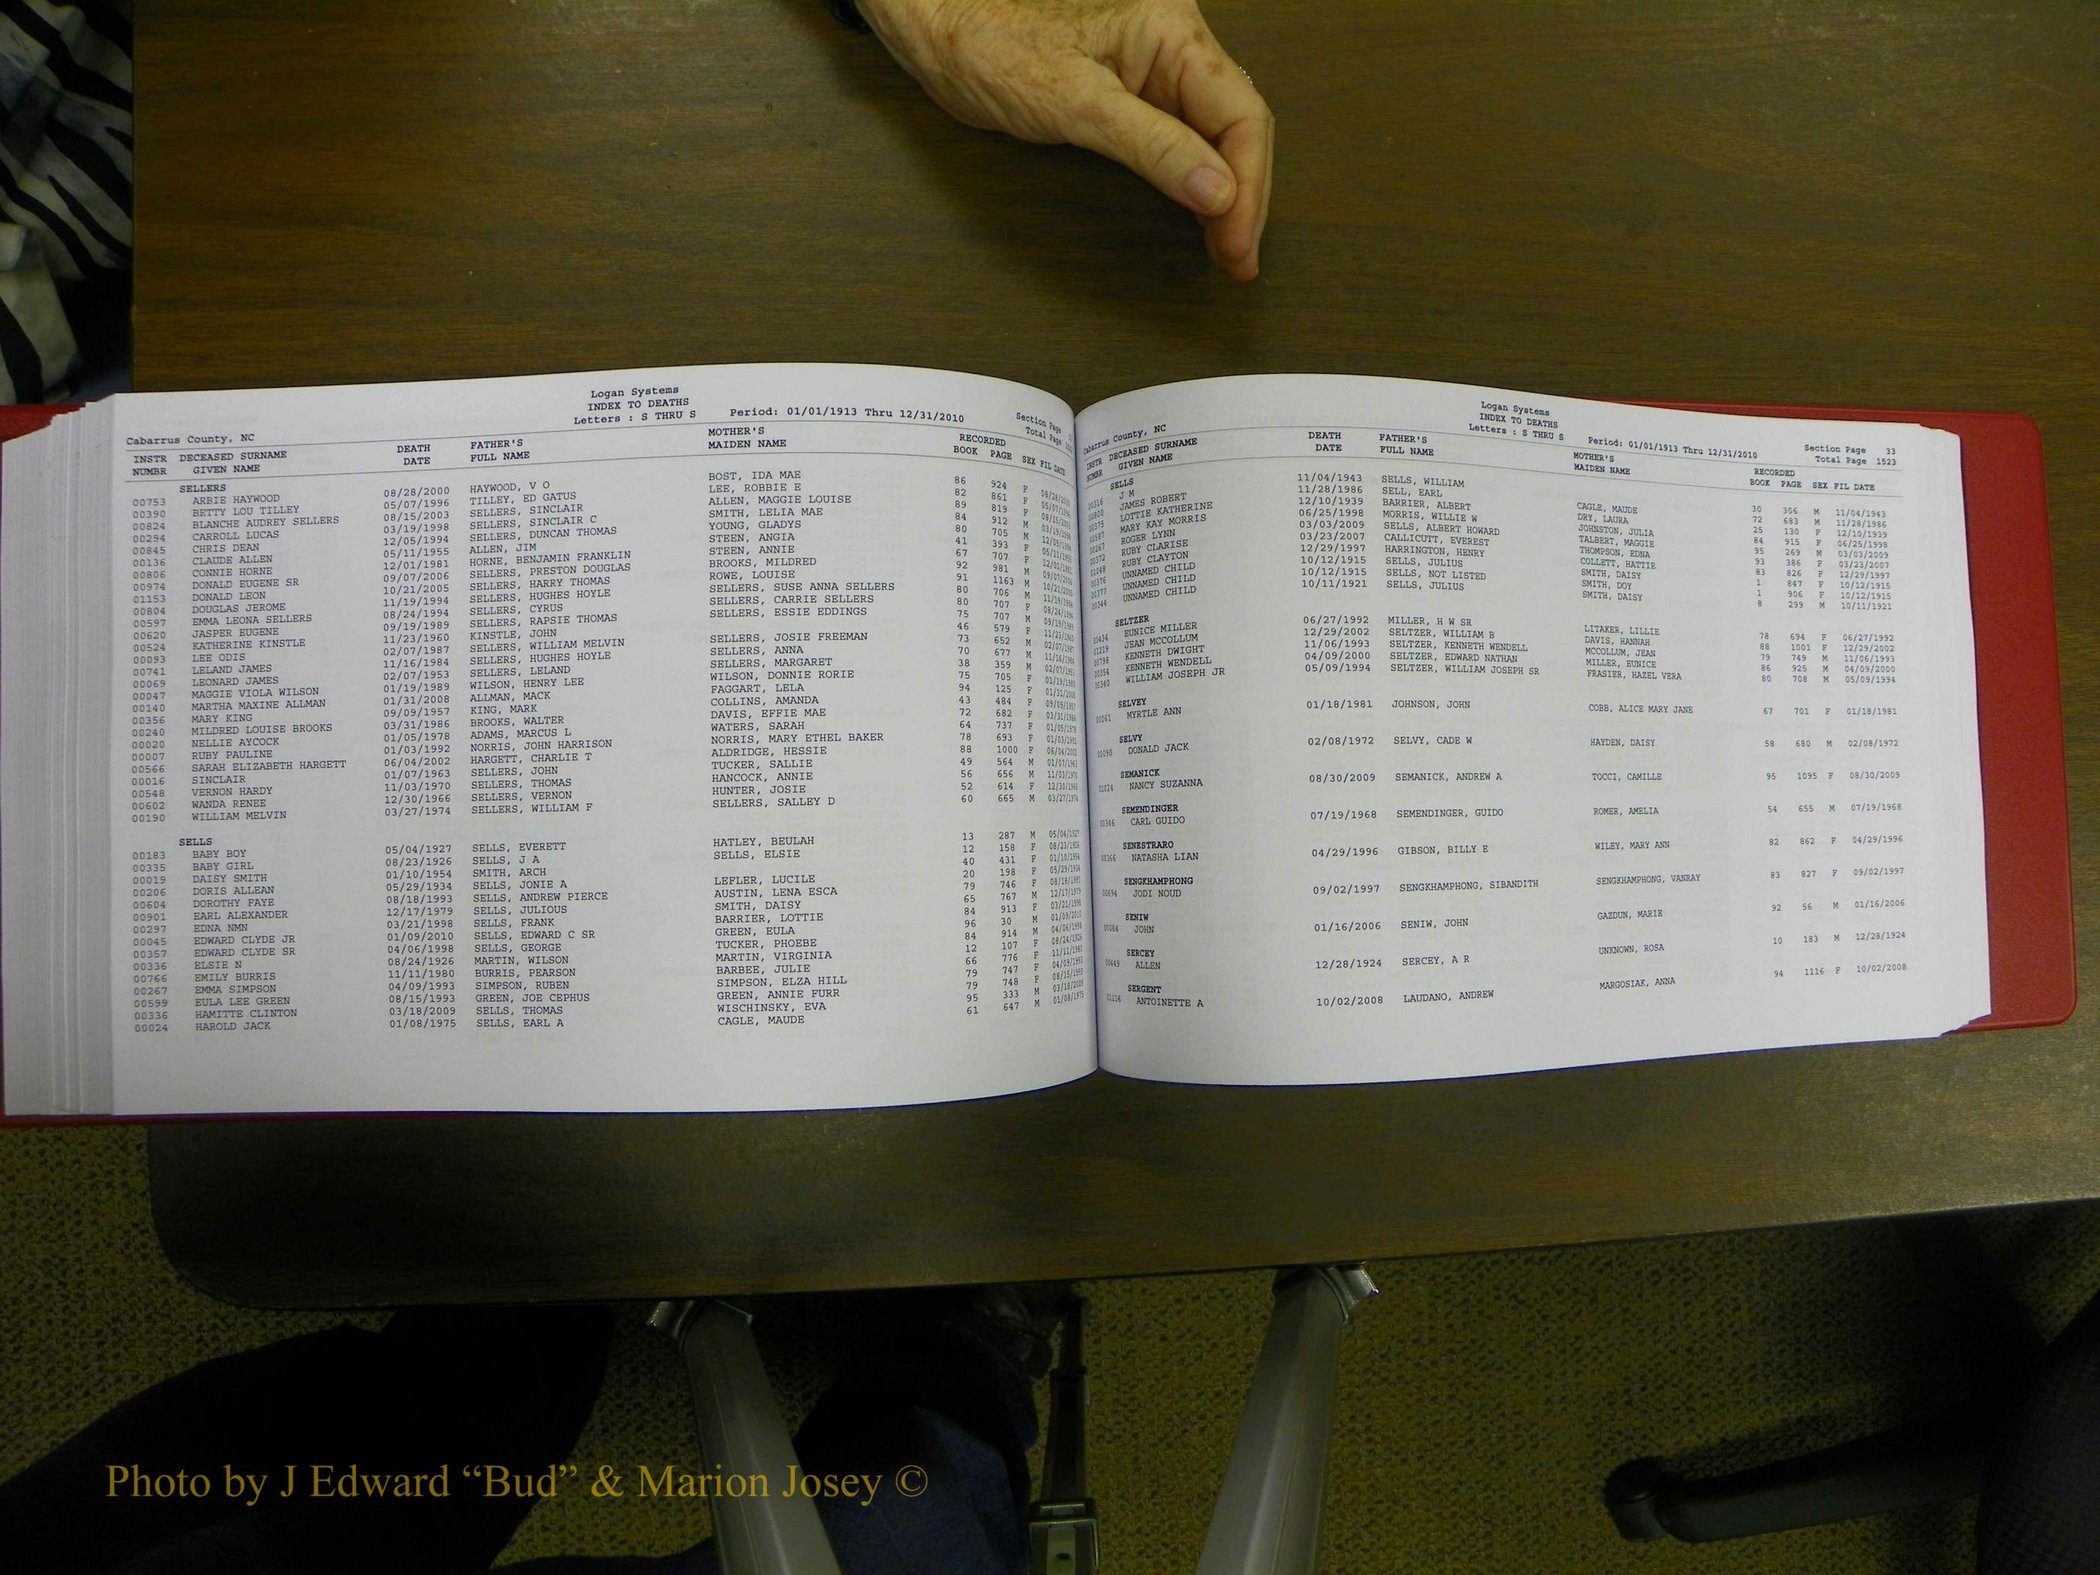 Logan Systems
INDEX TO DEATHS
Letters : S THRU S Period: 01/01/1913 Thru 12/31/2010 Section Page
Cabarrus County, NC Total Page
INSTR DECEASED SURNAME DEATH FATHER'S MOTHER'S RECORDED
NUMBR GIVEN NAME DATE FULL NAME MAIDEN NAME BOOK PAGE SEX FIL DATE
SELLERS
00753 ARBIE HAYWOOD 08/28/2000 HAYWOOD, V O BOST, IDA MAE 86 924 F 08/28/2000
00390 BETTY LOU TILLEY 05/07/1996 TILLEY, ED GATUS LEE, ROBBIE E 82 861 F 05/07/1996
00824 BLANCHE AUDREY SELLERS 08/15/2003 SELLERS, SINCLAIR ALLEN, MAGGIE LOUISE 89 819 F 08/15/2003
00294 CARROLL LUCAS 03/19/1998 SELLERS, SINCLAIR C SMITH, LELIA MAE 84 912 M 03/19/1998
00845 CHRIS DEAN 12/05/1994 SELLERS, DUNCAN THOMAS YOUNG, GLADYS 80 705 M 12/05/1994
00136 CLAUDE ALLEN 05/11/1955 ALLEN, JIM STEEN, ANGIA 41 393 F 05/11/1955
00806 CONNIE HORNE 12/01/1981 HORNE, BENJAMIN FRANKLIN STEEN, ANNIE 67 707 F 12/01/1981
00974 DONALD EUGENE SR 09/07/2006 SELLERS, PRESTON DOUGLAS BROOKS, MILDRED 92 981 M 09/07/2006
01153 DONALD LEON 10/21/2005 SELLERS, HARRY THOMAS ROWE, LOUISE 91 1163 M 10/21/2005
00804 DOUGLAS JEROME 11/19/1994 SELLERS, HUGHES HOYLE SELLERS, SUSE ANNA SELLERS 80 706 M 11/19/1994
00597 EMMA LEONA SELLERS 08/24/1994 SELLERS, CYRUS SELLERS, CARRIE SELLERS 80 707 F 08/24/1994
00620 JASPER EUGENE 09/19/1989 SELLERS, RAPSIE THOMAS SELLERS, ESSIE EDDINGS 75 707 M 09/19/1989
00524 KATHERINE KINSTLE 11/23/1960 KINSTLE, JOHN 46 579 F 11/23/1960
00093 LEE ODIS 02/07/1987 SELLERS, WILLIAM MELVIN SELLERS, JOSIE FREEMAN 73 652 M 02/07/1987
00741 LELAND JAMES 11/16/1984 SELLERS, HUGHES HOYLE SELLERS, ANNA 70 677 M 11/16/1984
00069 LEONARD JAMES 02/07/1953 SELLERS, LELAND SELLERS, MARGARET 38 359 M 02/07/1953
00047 MAGGIE VIOLA WILSON 01/19/1989 WILSON, HENRY LEE WILSON, DONNIE RORIE 75 705 F 01/19/1989
00140 MARTHA MAXINE ALLMAN 01/31/2008 ALLMAN, MACK FAGGART, LELA 94 125 F 01/31/2008
00356 MARY KING 09/09/1957 KING, MARK COLLINS, AMANDA 43 484 F 09/09/1957
00240 MILDRED LOUISE BROOKS 03/31/1986 BROOKS, WALTER DAVIS, EFFIE MAE 72 682 F 03/31/1986
00020 NELLIE AYCOCK 01/05/1978 ADAMS, MARCUS L WATERS, SARAH 64 737 F 01/05/1978
00007 RUBY PAULINE 01/03/1992 NORRIS, JOHN HARRISON NORRIS, MARY ETHEL BAKER 78 693 F 01/03/1992
00566 SARAH ELIZABETH HARGETT 06/04/2002 HARGETT, CHARLIE T ALDRIDGE, HESSIE 88 1000 F 06/04/2002
00016 SINCLAIR 01/07/1963 SELLERS, JOHN TUCKER, SALLIE 49 564 M 01/07/1963
00548 VERNON HARDY 11/03/1970 SELLERS, THOMAS HANCOCK, ANNIE 56 656 M 11/03/1970
00602 WANDA RENEE 12/30/1966 SELLERS, VERNON HUNTER, JOSIE 52 614 F 12/30/1966
00190 WILLIAM MELVIN 03/27/1974 SELLERS, WILLIAM F SELLERS, SALLEY D 60 665 M 03/27/1974
SELLS
00183 BABY BOY 05/04/1927 SELLS, EVERETT HATLEY, BEULAH 13 287 M 05/04/1927
00335 BABY GIRL 08/23/1926 SELLS, J A SELLS, ELSIE 12 158 F 08/23/1926
00019 DAISY SMITH 01/10/1954 SMITH, ARCH 40 431 F 01/10/1954
00206 DORIS ALLEAN 05/29/1934 SELLS, JONIE A LEFLER, LUCILE 20 198 F 05/29/1934
00604 DOROTHY FAYE 08/18/1993 SELLS, ANDREW PIERCE AUSTIN, LENA ESCA 79 746 F 08/18/1993
00901 EARL ALEXANDER 12/17/1979 SELLS, JULIOUS SMITH, DAISY 65 767 M 12/17/1979
00297 EDNA NMN 03/21/1998 SELLS, FRANK BARRIER, LOTTIE 84 913 F 03/21/1998
00045 EDWARD CLYDE JR 01/09/2010 SELLS, EDWARD C SR GREEN, EULA 96 30 M 01/09/2010
00357 EDWARD CLYDE SR 04/06/1998 SELLS, GEORGE TUCKER, PHOEBE 84 914 M 04/06/1998
00336 ELSIE N 08/24/1926 MARTIN, WILSON MARTIN, VIRGINIA 12 107 F 08/24/1926
00766 EMILY BURRIS 11/11/1980 BURRIS, PEARSON BARBEE, JULIE 66 776 F 11/11/1980
00267 EMMA SIMPSON 04/09/1993 SIMPSON, RUBEN SIMPSON, ELZA HILL 79 747 F 04/09/1993
00599 EULA LEE GREEN 08/15/1993 GREEN, JOE CEPHUS GREEN, ANNIE FURR 79 748 F 08/15/1993
00336 HAMITTE CLINTON 03/18/2009 SELLS, THOMAS WISCHINSKY, EVA 95 333 M 03/18/2009
00024 HAROLD JACK 01/08/1975 SELLS, EARL A CAGLE, MAUDE 61 647 M 01/08/1975
Logan Systems
INDEX TO DEATHS
Letters : S THRU S Period: 01/01/1913 Thru 12/31/2010 Section Page 33
Cabarrus County, NC Total Page 1523
INSTR DECEASED SURNAME DEATH FATHER'S MOTHER'S RECORDED
NUMBR GIVEN NAME DATE FULL NAME MAIDEN NAME BOOK PAGE SEX FIL DATE
SELLS
00316 J M 11/04/1943 SELLS, WILLIAM 30 306 M 11/04/1943
00800 JAMES ROBERT 11/28/1986 SELL, EARL CAGLE, MAUDE 72 683 M 11/28/1986
00375 LOTTIE KATHERINE 12/10/1939 BARRIER, ALBERT DRY, LAURA 25 130 F 12/10/1939
00587 MARY KAY MORRIS 06/25/1998 MORRIS, WILLIE W JOHNSTON, JULIA 84 915 F 06/25/1998
00267 ROGER LYNN 03/03/2009 SELLS, ALBERT HOWARD TALBERT, MAGGIE 95 269 M 03/03/2009
00372 RUBY CLARISE 03/23/2007 CALLICUTT, EVEREST THOMPSON, EDNA 93 386 F 03/23/2007
01048 RUBY CLAYTON 12/29/1997 HARRINGTON, HENRY COLLETT, HATTIE 83 826 F 12/29/1997
00376 UNNAMED CHILD 10/12/1915 SELLS, JULIUS SMITH, DAISY 1 847 F 10/12/1915
00377 UNNAMED CHILD 10/12/1915 SELLS, NOT LISTED SMITH, DOY 1 906 F 10/12/1915
00344 UNNAMED CHILD 10/11/1921 SELLS, JULIUS SMITH, DAISY 8 299 M 10/11/1921
SELTZER
00434 EUNICE MILLER 06/27/1992 MILLER, H W SR LITAKER, LILLIE 78 694 F 06/27/1992
01219 JEAN MCCOLLUM 12/29/2002 SELTZER, WILLIAM B DAVIS, HANNAH 88 1001 F 12/29/2002
00798 KENNETH DWIGHT 11/06/1993 SELTZER, KENNETH WENDELL MCCOLLUM, JEAN 79 749 M 11/06/1993
00354 KENNETH WENDELL 04/09/2000 SELTZER, EDWARD NATHAN MILLER, EUNICE 86 925 M 04/09/2000
00340 WILLIAM JOSEPH JR 05/09/1994 SELTZER, WILLIAM JOSEPH SR FRASIER, HAZEL VERA 80 708 M 05/09/1994
SELVEY
00061 MYRTLE ANN 01/18/1981 JOHNSON, JOHN COBB, ALICE MARY JANE 67 701 F 01/18/1981
SELVY
00090 DONALD JACK 02/08/1972 SELVY, CADE W HAYDEN, DAISY 58 680 M 02/08/1972
SEMANICK
01024 NANCY SUZANNA 08/30/2009 SEMANICK, ANDREW A TOCCI, CAMILLE 95 1095 F 08/30/2009
SEMENDINGER
00346 CARL GUIDO 07/19/1968 SEMENDINGER, GUIDO ROMER, AMELIA 54 655 M 07/19/1968
SENESTRARO
00366 NATASHA LIAN 04/29/1996 GIBSON, BILLY E WILEY, MARY ANN 82 862 F 04/29/1996
SENGKHAMPHONG
00694 JODI NOUD 09/02/1997 SENGKHAMPHONG, SIBANDITH SENGKHAMPHONG, VANRAY 83 827 F 09/02/1997
SENIW
00084 JOHN 01/16/2006 SENIW, JOHN GAZDUN, MARIE 92 56 M 01/16/2006
SERCEY
00449 ALLEN 12/28/1924 SERCEY, A R UNKNOWN, ROSA 10 183 M 12/28/1924
SERGENT
01116 ANTOINETTE A 10/02/2008 LAUDANO, ANDREW MARGOSIAK, ANNA 94 1116 F 10/02/2008
Photo by J Edward “Bud” & Marion Josey ©